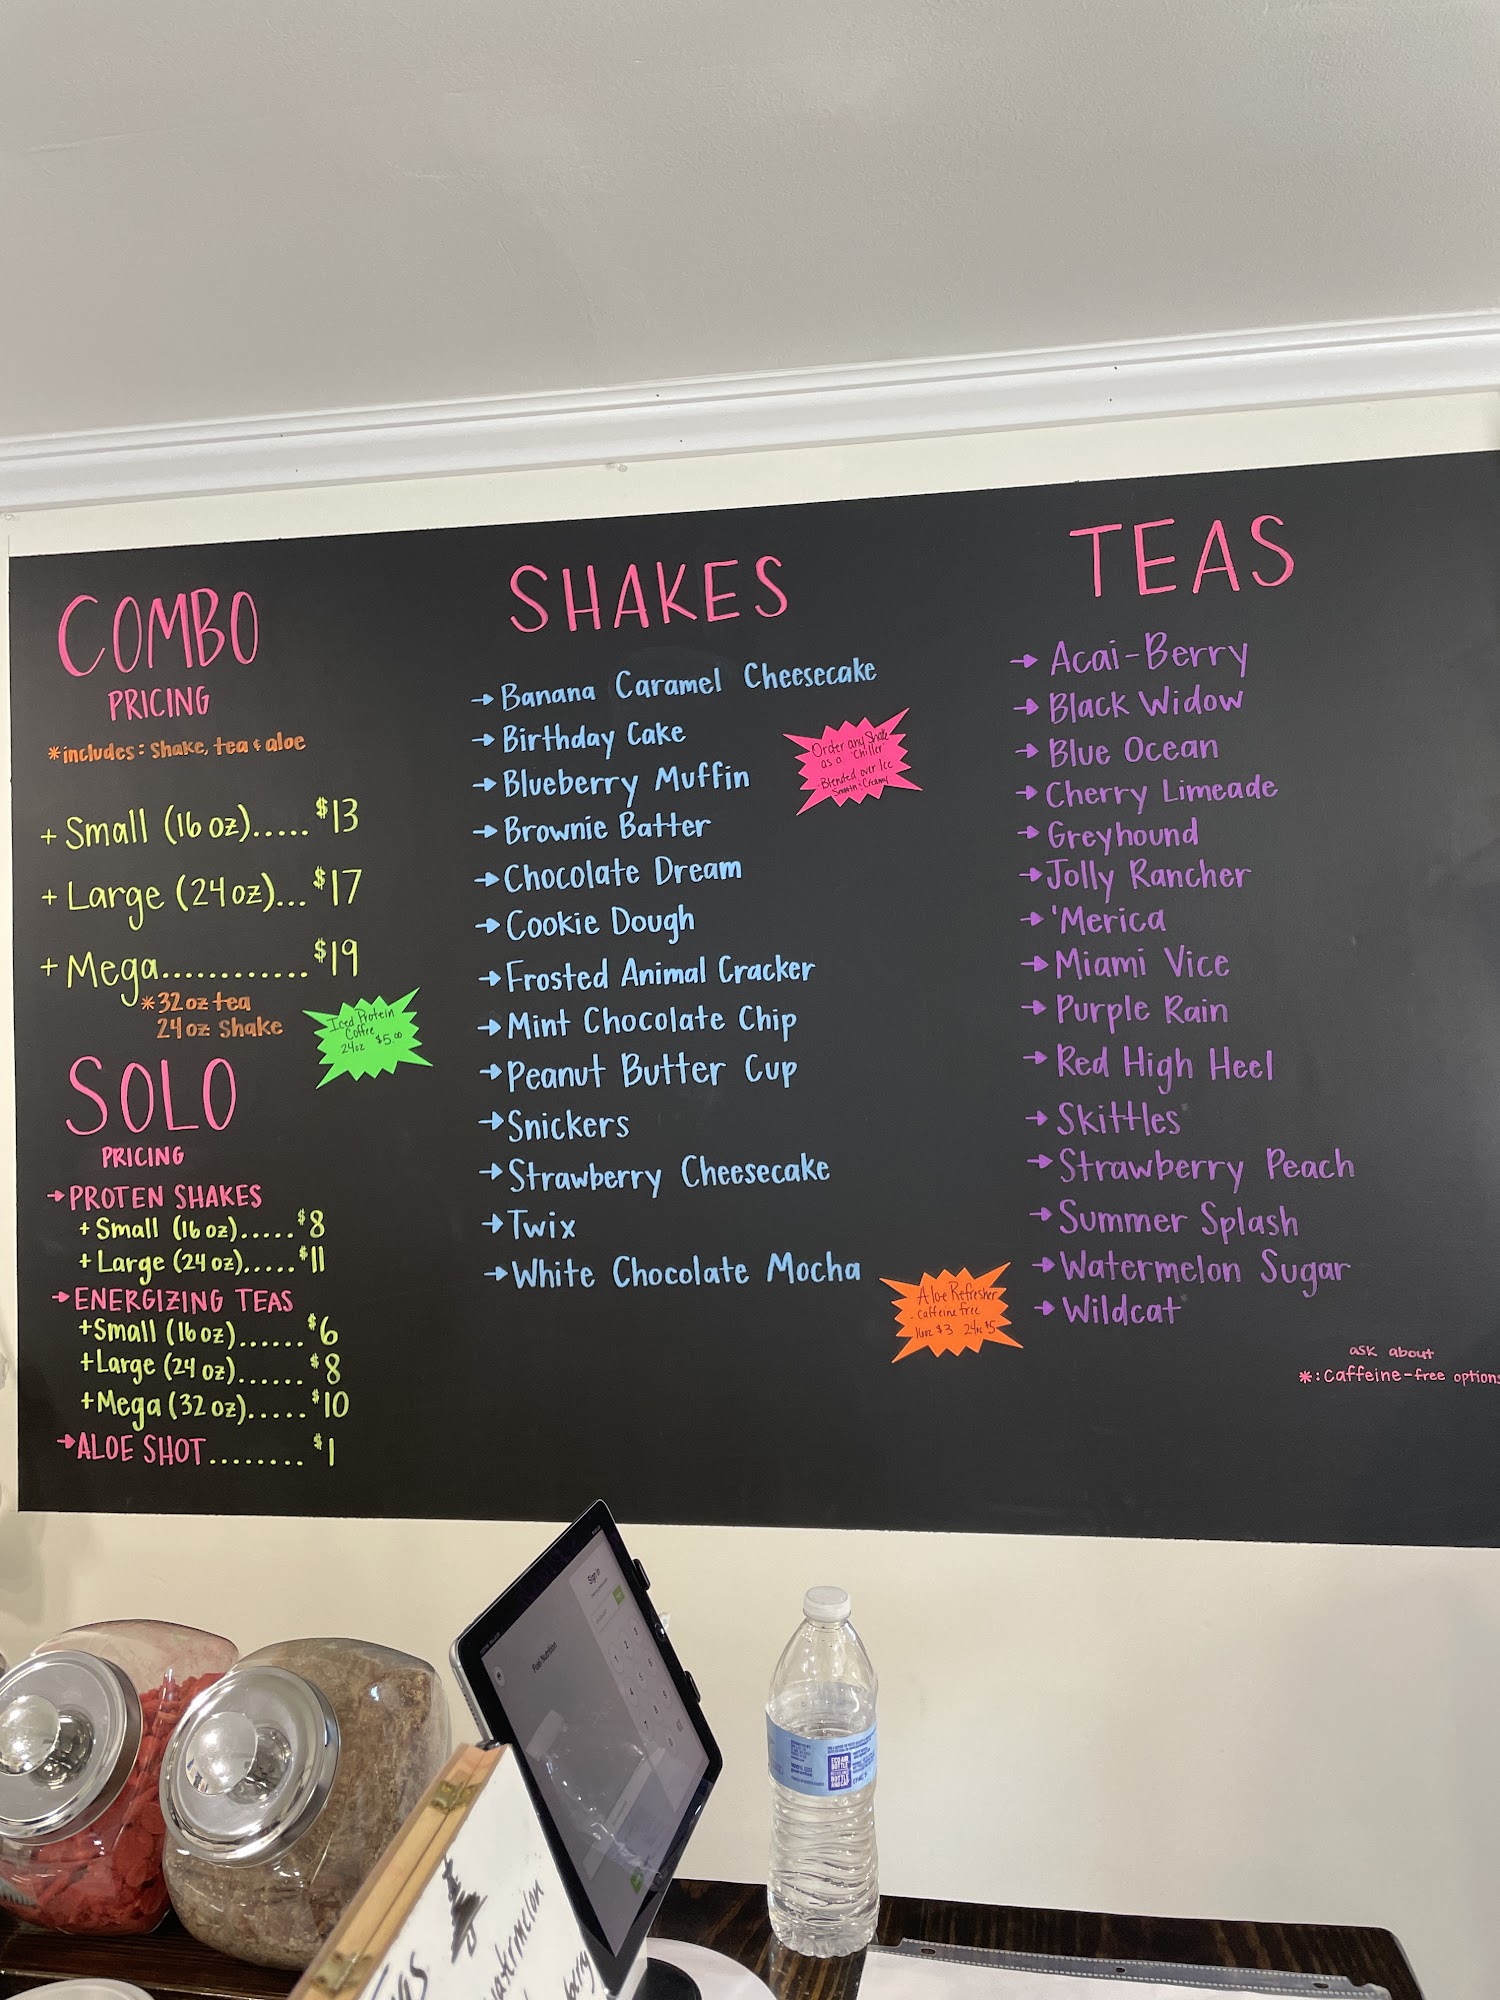 COMBO
PRICING
*includes: Shake, tea & aloe
+ Small (16 oz)..... $13
+ Large (24 oz)... $17
+ Mega............ $19
*32 oz tea
24 oz Shake
Iced Protein
Coffee
24oz $5.00
SOLO
PRICING
→ PROTEN SHAKES
+ Small (16 oz)..... $8
+ Large (24 oz)..... $11
→ ENERGIZING TEAS
+Small (16 oz)...... $6
+Large (24 oz)...... $8
+Mega (32 oz)..... $10
→ ALOE SHOT........ $1
SHAKES
→ Banana Caramel Cheesecake
→ Birthday Cake
→ Blueberry Muffin
→ Brownie Batter
→ Chocolate Dream
→ Cookie Dough
→ Frosted Animal Cracker
→ Mint Chocolate Chip
→ Peanut Butter Cup
→ Snickers
→ Strawberry Cheesecake
→ Twix
→ White Chocolate Mocha
Order any Shake
as a "Chiller"
-Blended over Ice
Smooth & Creamy
Aloe Refresher
- caffeine free
16oz $3 24oz $5
TEAS
→ Acai-Berry
→ Black Widow
→ Blue Ocean
→ Cherry Limeade
→ Greyhound
→ Jolly Rancher
→ 'Merica
→ Miami Vice
→ Purple Rain
→ Red High Heel
→ Skittles
→ Strawberry Peach
→ Summer Splash
→ Watermelon Sugar
→ Wildcat
ask about
*: Caffeine-free options
Sign In
Fuel Nutrition
1 2 3
4 5 6
7 8 9
0
ECO-AIR
BOTTLE
BOTTLE
AND CAP